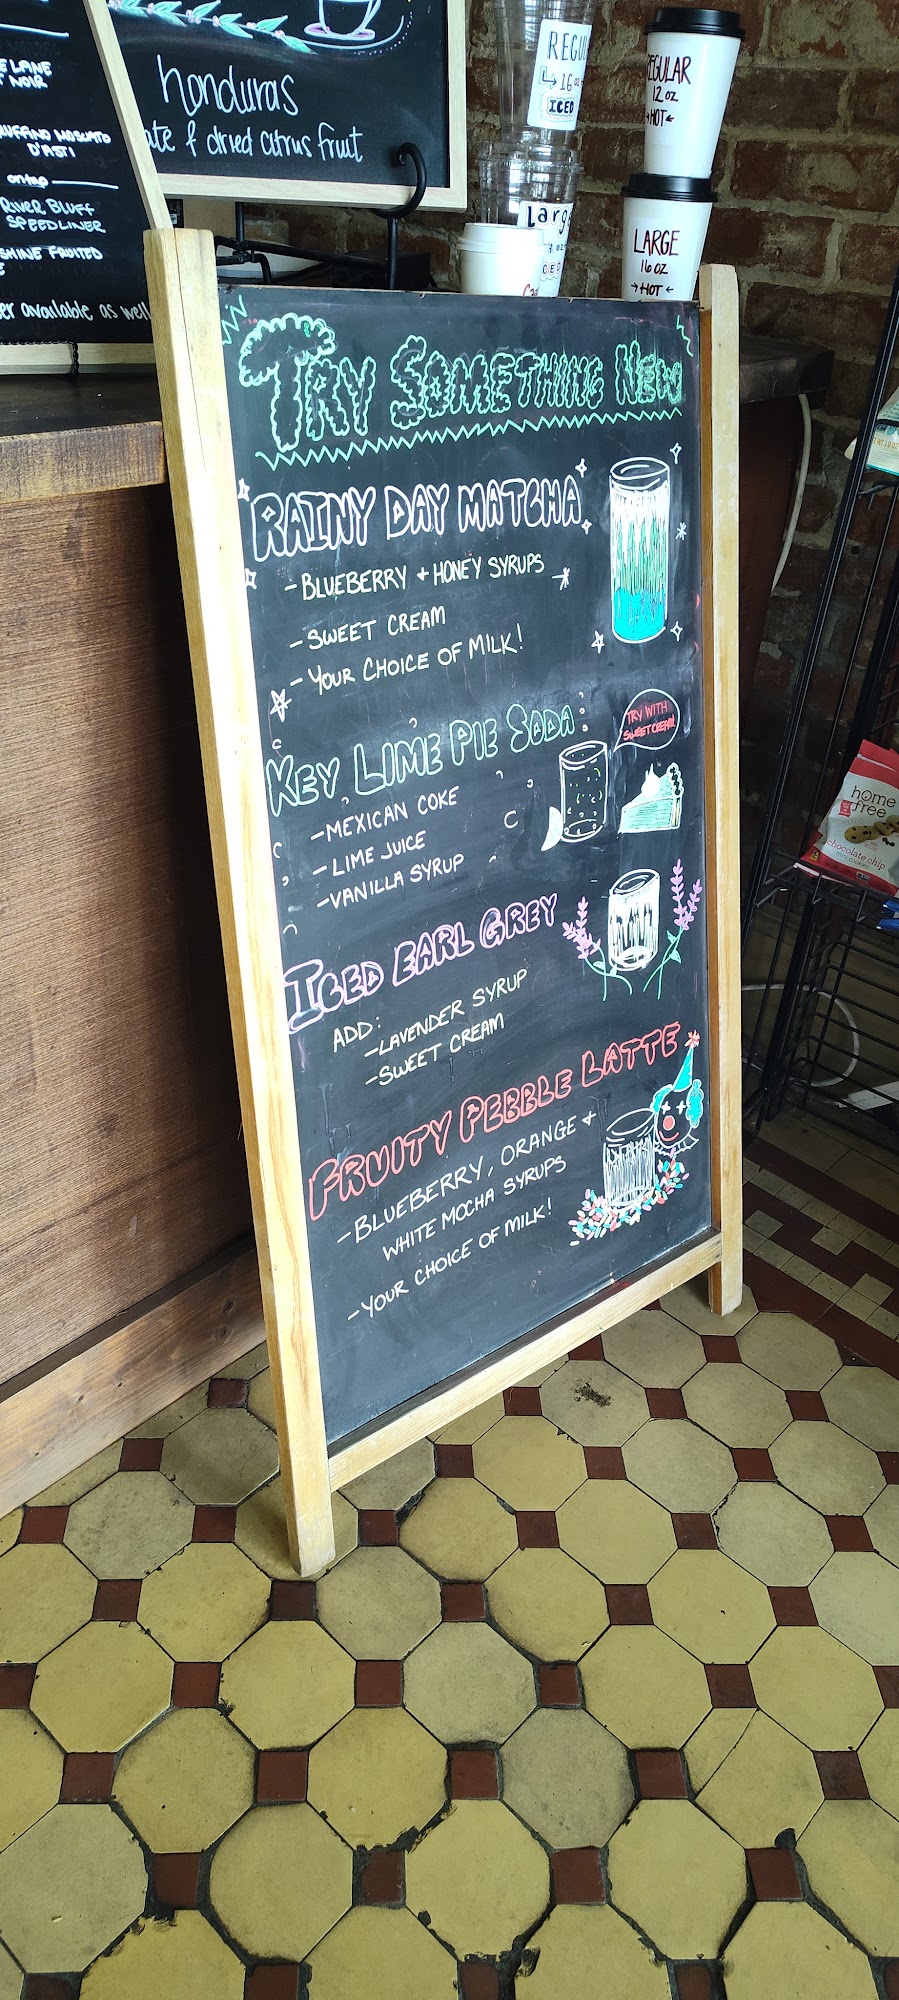 honduras
& dried citrus fruit
NOIR
RUFFINO MOSCATO
D'ASTI
on tap
RIVER BLUFF
SPEEDLINER
FRUITED
available as well
REGU
↳ 16 oz
ICED
REGULAR
12 oz
→HOT←
Larg
LARGE
16 OZ
→HOT←
TRY SOMETHING NEW
RAINY DAY MATCHA
-BLUEBERRY + HONEY SYRUPS
-SWEET CREAM
-YOUR CHOICE OF MILK!
KEY LIME PIE SODA
TRY WITH
SWEET CREAM!
-MEXICAN COKE
-LIME JUICE
-VANILLA SYRUP
ICED EARL GREY
ADD:
-LAVENDER SYRUP
-SWEET CREAM
FRUITY PEBBLE LATTE
-BLUEBERRY, ORANGE +
WHITE MOCHA SYRUPS
-YOUR CHOICE OF MILK!
home
free
chocolate chip
mini cookies